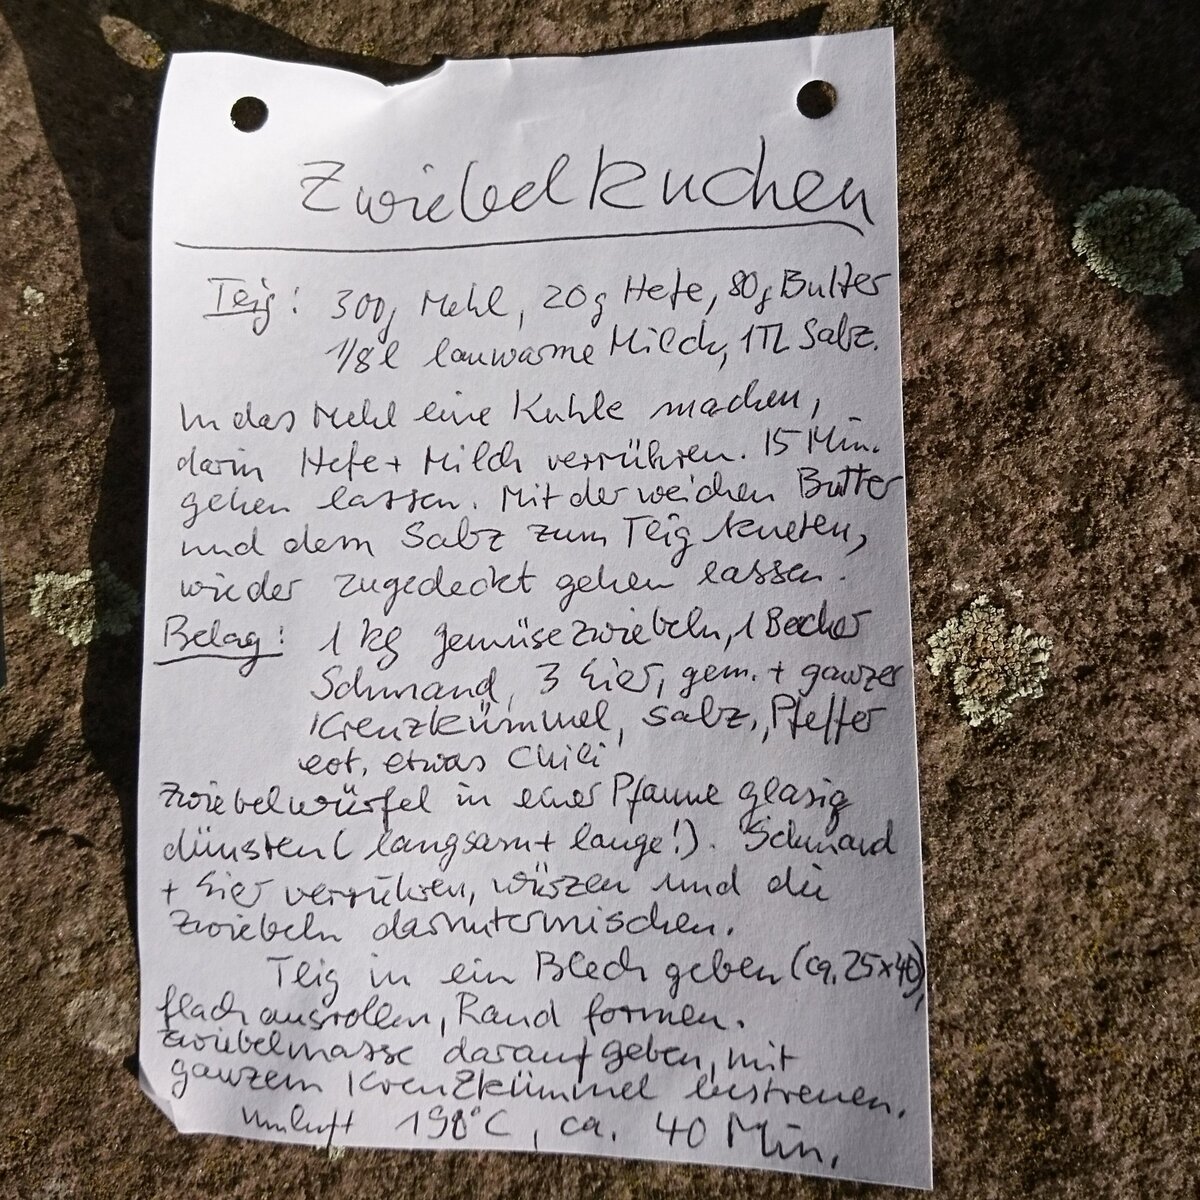 Zwiebelkuchen
Teig: 300g Mehl, 20g Hefe, 80g Butter
1/8 l lauwarme Milch, 1TL Salz.
In das Mehl eine Kuhle machen,
darin Hefe + Milch verrühren. 15 Min.
gehen lassen. Mit der weichen Butter
und dem Salz zum Teig kneten,
wieder zugedeckt gehen lassen.
Belag: 1 kg Gemüsezwiebeln, 1 Becher
Schmand, 3 Eier, gem. + ganzer
Kreuzkümmel, Salz, Pfeffer
evt. etwas Chili
Zwiebelwürfel in einer Pfanne glasig
dünsten (langsam + lange!). Schmand
+ Eier verrühren, würzen und die
Zwiebeln daruntermischen.
Teig in ein Blech geben (ca. 25x40),
flach ausrollen, Rand formen.
Zwiebelmasse darauf geben, mit
ganzem Kreuzkümmel bestreuen.
Umluft 190°C, ca. 40 Min.